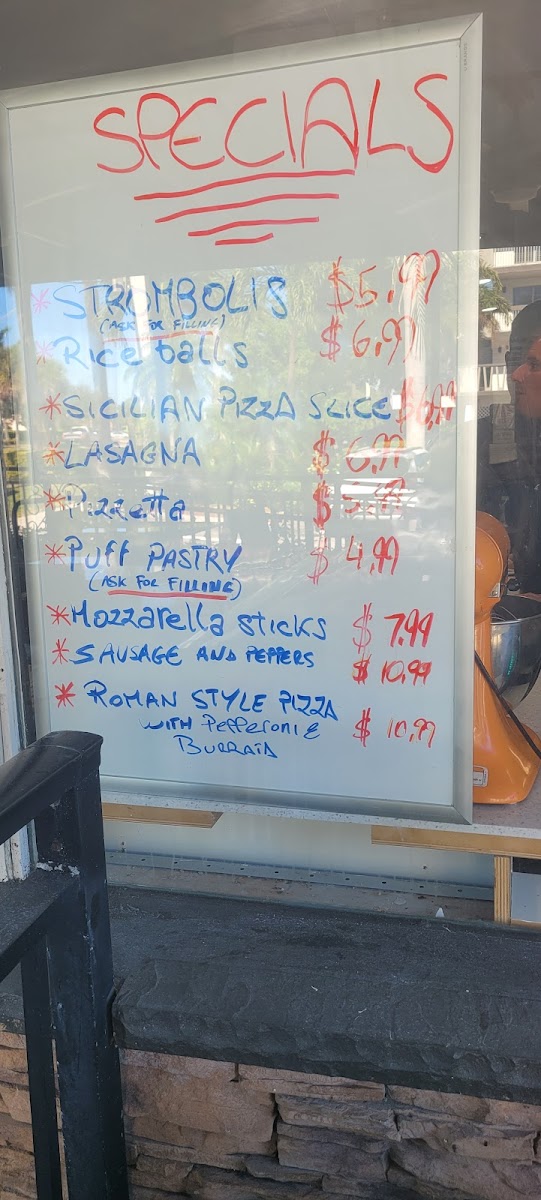 SPECIALS
* STROMBOLIS $5.99
(ASK FOR FILLING)
* Rice balls $6.99
* SICILIAN PIZZA SLICE
* LASAGNA $6.99
* Pizzetta $5.99
* Puff PASTRY $4.99
(ASK FOR FILLING)
* Mozzarella sticks $7.99
* SAUSAGE AND PEPPERS $10.99
* ROMAN STYLE PIZZA
WITH Pepperoni & $10.99
BURRATA